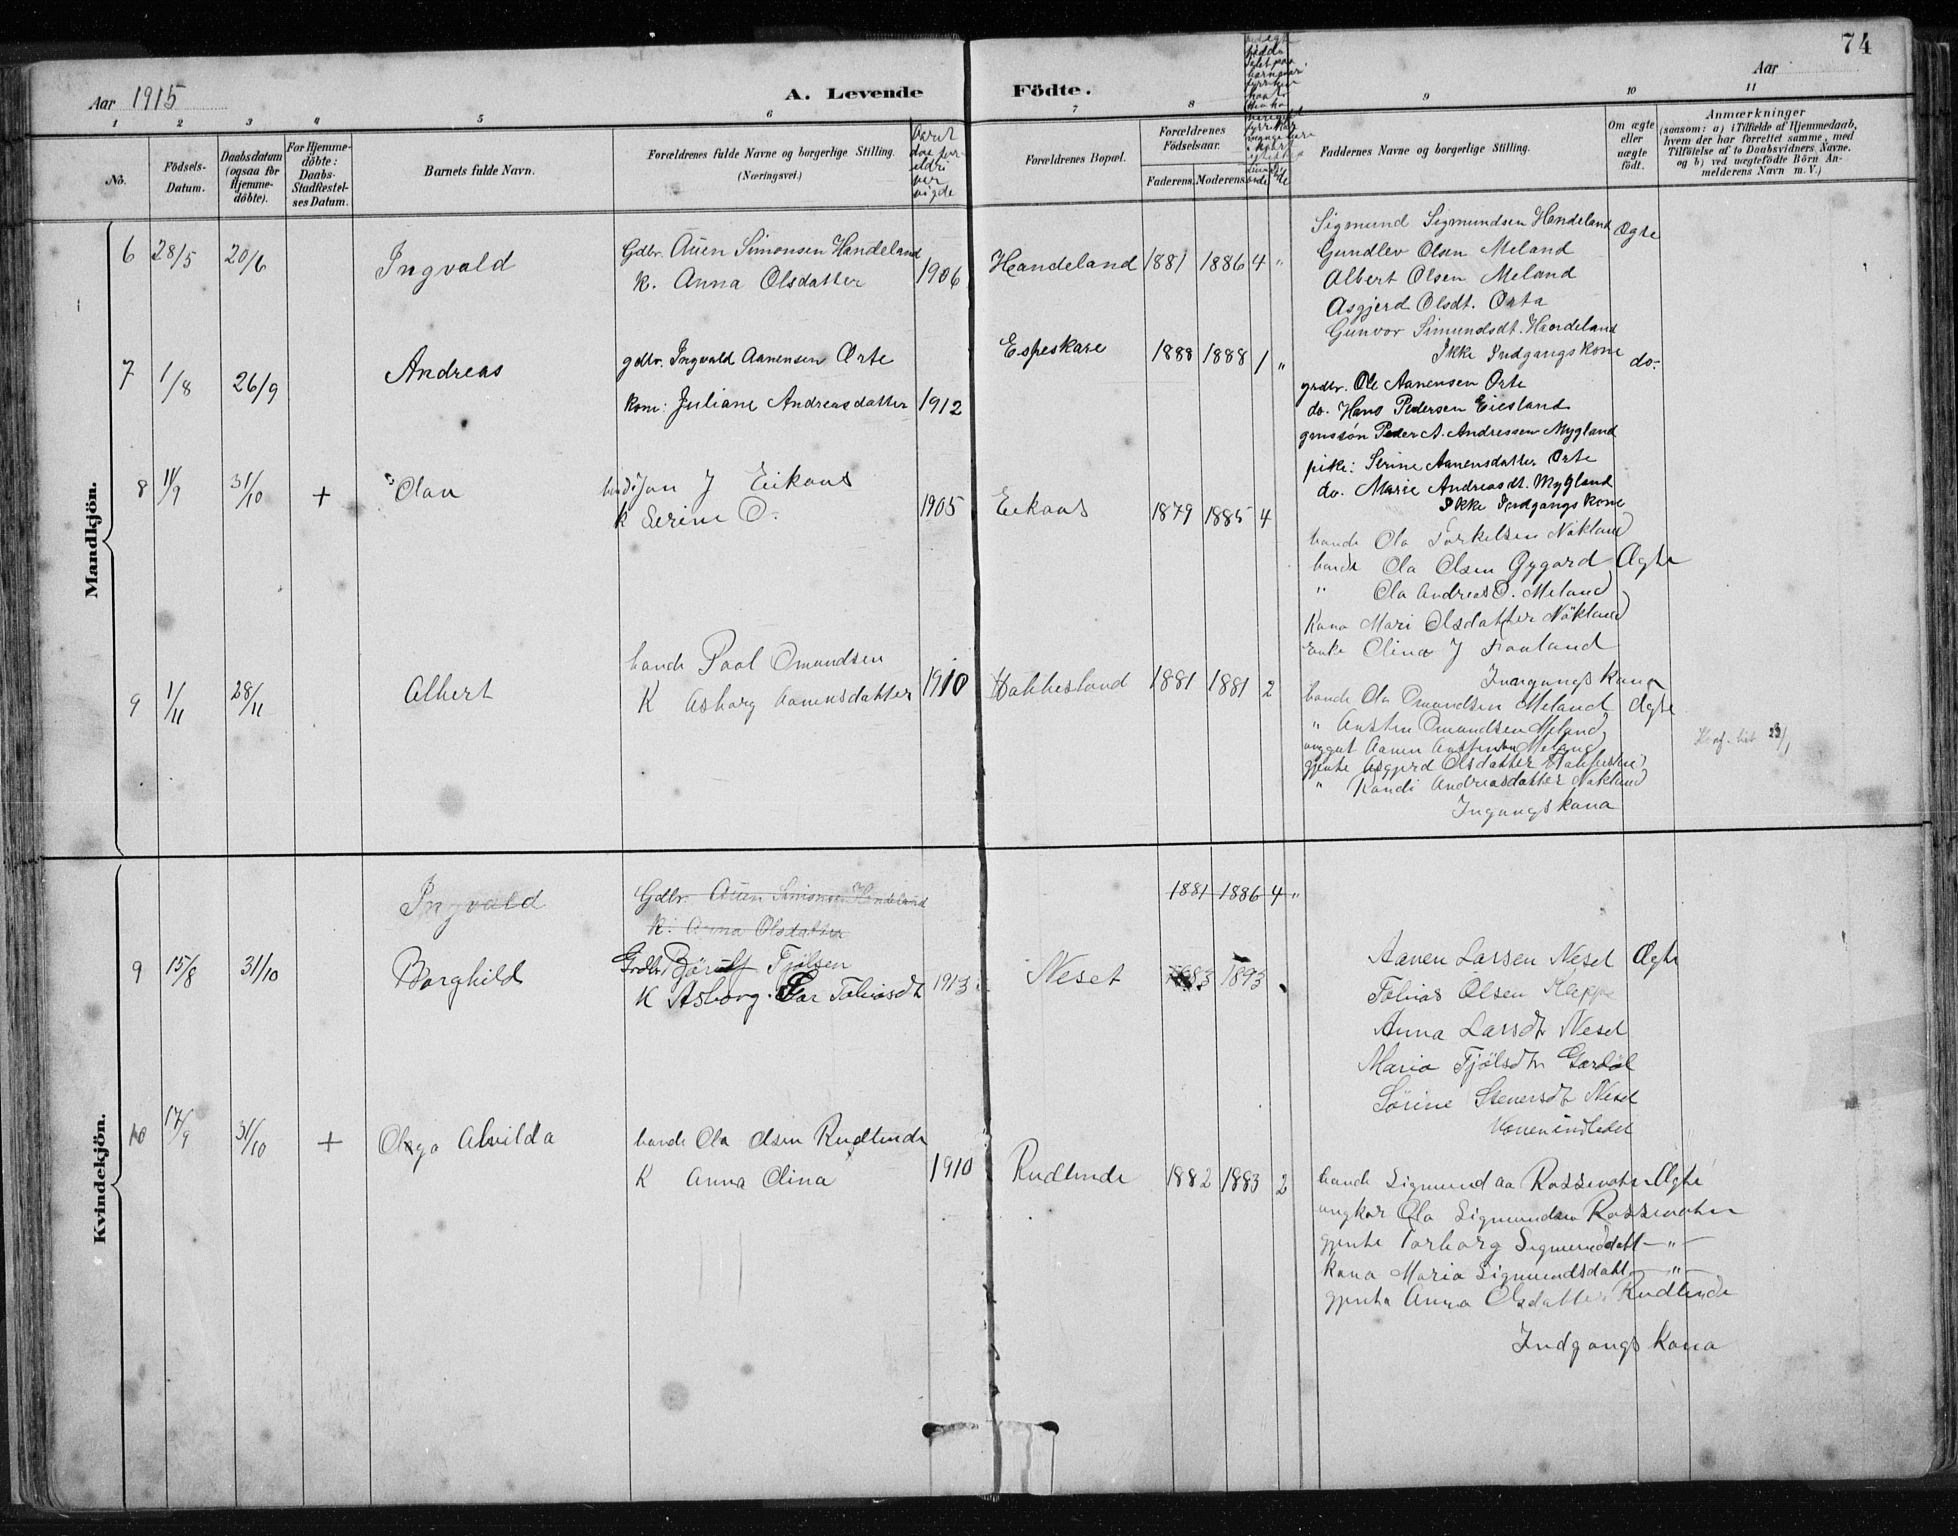 74
Aar 1915
A. Levende
Födte.
Aar
1 2 3 4 5 6 7 8 9 10 11
No.
Födsels-Datum.
Daabsdatum (ogsaa for Hjemme-döbte).
For Hjemme-döbte: Daabs-Stadfæstel-ses Datum.
Barnets fulde Navn.
Forældrenes fulde Navne og borgerlige Stilling.
(Næringsvei.)
Forældrenes Bopæl.
Forældrenes Födselsaar.
Faderens. Moderens.
Faddernes Navne og borgerlige Stilling.
Om ægte eller uægte födt.
Anmærkninger
(saasom: a) i Tilfælde af Hjemmedaab,
hvem der har forrettet samme, med
Tilföielse af to Daabsvidners Navne,
og b) ved uægtefödte Börn An-
melderens Navn m. V.)
Mandkjön.
6 28/5 20/6 Ingvald
Gdbr. Auen Simonsen Handeland
K. Anna Olsdatter
1906 Handeland 1881 1886 4 "
Sigmund Sigmundsen Handeland Ægte
Gundlev Olsen Meland
Albert Olsen Meland
Asgjerd Olsdt. Orta
Gunvor Simundsdt. Haandeland
Ikke Indgangskone
7 1/8 26/9 Andreas
gdbr. Ingvald Aanensen Orte
kone: Juliane Andreasdatter 1912
Espeskare 1888 1888 1 " do.
grdbr. Ole Aanensen Orte
do. Hans Pedersen Eiesland
Peder A. Andressen Mygland
pike: Serine Aanensdatter Orte
do. Marie Andreasdt. Mygland
Ikke Indgangskone
8 11/9 31/10 + Olav
Jon J Eikaas
K Serine O.
1905 Eikaas 1879 1885 4
bonde Ola Torkelsen Nökland
bonde Ola Olsen Gygard Ægte
" Ola Andreas O. Meland
Kona Mari Olsdatter Nökland
Enke Olina J
Inngangskona
9 1/11 28/11 Albert
bonde Paal Omundsen
K Asborg Aanensdatter
1910 1881 1881 2
bonde Ola Omundsen Meland Ægte
" Austen Omundsen Meland
unggut Aanen Austensen Meland
gjente Asgjerd Olsdatter
" Kandi Andreasdatter Nökland
Ingangskona
Kvindekjön.
Ingvald
Gdbr. Auen Simonsen Handeland
K. Anna Olsdatter
1881 1886 4 "
9 15/8 31/10 Borghild
Grdbr Börulf Fjölsen
K Asborg Tobiasdt 1913
Neset 1883 1893
Aanen Larsen Neset Ægte
Tobias Olsen Kleppe
Anna Larsdt Neset
Maria Fjölsdtr
Sörine Stenersdt Neset
Konen indledet
10 17/9 31/10 + Olga Alvilda
bonde Ola Olsen Rudlende
K Anna Olina
1910 Rudlende 1882 1883 2
bonde Sigmund Aa Rossevatn Ægte
ungkar Ola Sigmundsen Rossevatn
gjente Torborg Sigmunddatt — " —
kona Maria Sigmundsdatt — " —
gjente Anna Olsdatter Rudlende
Indgangskona